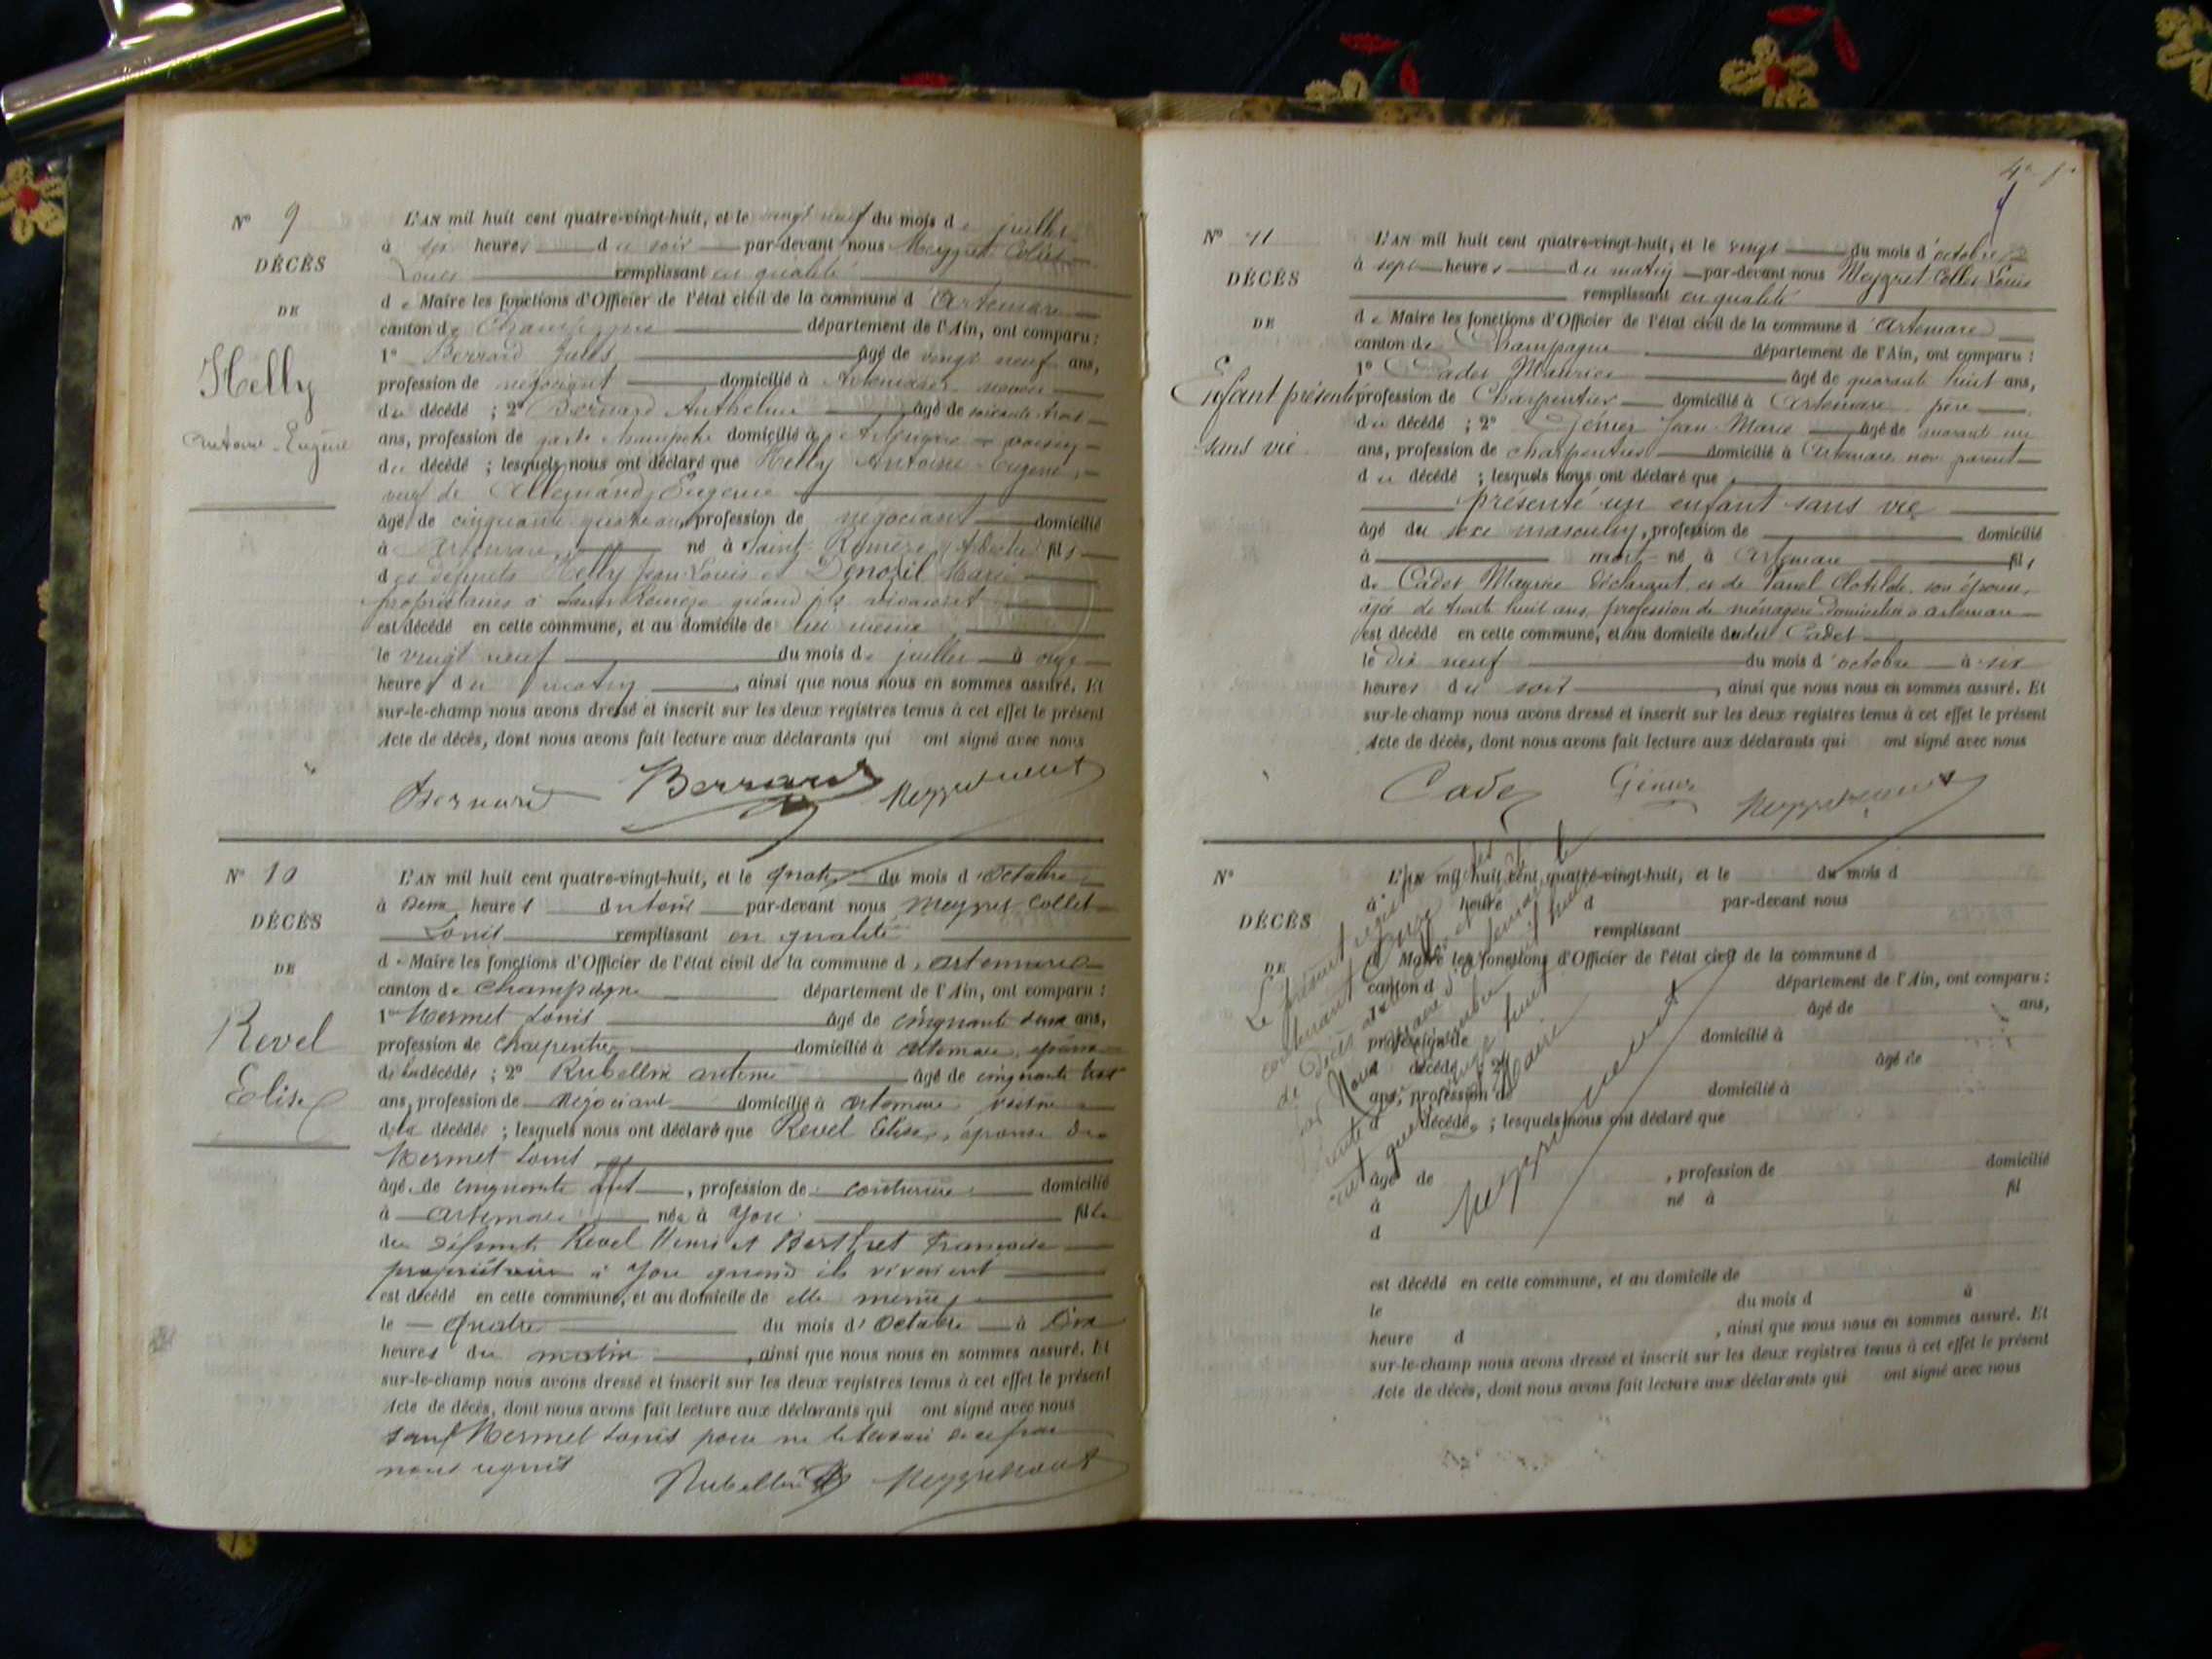 N° 9
DÉCÈS
DE
Helly
Antoine-Eugène
L'AN mil huit cent quatre-vingt-huit, et le vingt neuf du mois de juillet
à six heures du soir par-devant nous Meygret Collet
Louis remplissant en qualité
de Maire les fonctions d'Officier de l'état civil de la commune d'Artemare
canton de Champagne département de l'Ain, ont comparu :
1° Berrard Jules âgé de vingt neuf ans,
profession de négociant domicilié à Artemare neveu
du décédé ; 2° Bernard Anthelme âgé de soixante trois
ans, profession de garde champêtre domicilié à Artemare voisin
du décédé ; lesquels nous ont déclaré que Helly Antoine Eugène,
veuf de Allemand Eugénie
âgé de cinquante quatre ans, profession de négociant domicilié
à Artemare, né à Saint Remèze (Ardèche) fils
des défunts Helly Jean Louis et Denozil Marie
propriétaires à Saint Remèze quand ils vivaient
est décédé en cette commune, et au domicile de lui même
le vingt neuf du mois de juillet à onze
heures du matin, ainsi que nous nous en sommes assuré. Et
sur-le-champ nous avons dressé et inscrit sur les deux registres tenus à cet effet le présent
Acte de décès, dont nous avons fait lecture aux déclarants qui ont signé avec nous
Bernard Berrard
N° 10
DÉCÈS
DE
Revel
Elise
L'AN mil huit cent quatre-vingt-huit, et le quatre du mois d'Octobre
à Deux heures du soir par-devant nous Meygret Collet
Louis remplissant en qualité
de Maire les fonctions d'Officier de l'état civil de la commune d'artemare
canton de Champagne département de l'Ain, ont comparu :
1° Mermet Louis âgé de cinquante deux ans,
profession de Charpentier domicilié à artemare, époux
de la décédée ; 2° Rubellin antoine âgé de cinquante trois
ans, profession de Négociant domicilié à artemare voisin
de la décédée ; lesquels nous ont déclaré que Revel Elise, épouse de
Mermet Louis
âgé de cinquante sept, profession de couturière domicilié
à artemare née à Yon fille
des défunts Revel Henri et Berthet Françoise
propriétaires à Yon quand ils vivaient
est décédé en cette commune, et au domicile de elle même,
le quatre du mois d'Octobre à Dix
heures du matin, ainsi que nous nous en sommes assuré. Et
sur-le-champ nous avons dressé et inscrit sur les deux registres tenus à cet effet le présent
Acte de décès, dont nous avons fait lecture aux déclarants qui ont signé avec nous
sauf Mermet Louis pour ne le savoir de ce par
nous requis
Rubellin
N° 11
DÉCÈS
DE
Enfant présenté
sans vie
L'AN mil huit cent quatre-vingt-huit, et le vingt du mois d'octobre
à sept heures du matin par-devant nous Meygret Collet Louis
remplissant en qualité
de Maire les fonctions d'Officier de l'état civil de la commune d'Artemare
canton de Champagne département de l'Ain, ont comparu :
1° Cadet Maurice âgé de quarante huit ans,
profession de Charpentier domicilié à Artemare père
du décédé ; 2° Génier Jean-Marie âgé de quarante un
ans, profession de charpentier domicilié à Artemare non parent
du décédé ; lesquels nous ont déclaré que
présenté un enfant sans vie
âgé du sexe masculin, profession de domicilié
à mort-né à Artemare fils
de Cadet Maurice déclarant et de Vanel Clotilde son épouse,
âgée de trente huit ans, profession de ménagère domiciliée à artemare
est décédé en cette commune, et au domicile dudit Cadet
le dix neuf du mois d'octobre à six
heures du soir, ainsi que nous nous en sommes assuré. Et
sur-le-champ nous avons dressé et inscrit sur les deux registres tenus à cet effet le présent
Acte de décès, dont nous avons fait lecture aux déclarants qui ont signé avec nous
Cadet Génier
N°
DÉCÈS
DE
L'AN mil huit cent quatre-vingt-huit, et le du mois d
à heure d par-devant nous
remplissant
d Maire les fonctions d'Officier de l'état civil de la commune d
canton d département de l'Ain, ont comparu :
1° âgé de ans,
profession de domicilié à
d décédé ; 2° âgé de
ans, profession de domicilié à
d décédé ; lesquels nous ont déclaré que
âgé de , profession de domicilié
à né à fil
d
est décédé en cette commune, et au domicile de
le du mois d à
heure d , ainsi que nous nous en sommes assuré. Et
sur-le-champ nous avons dressé et inscrit sur les deux registres tenus à cet effet le présent
Acte de décès, dont nous avons fait lecture aux déclarants qui ont signé avec nous